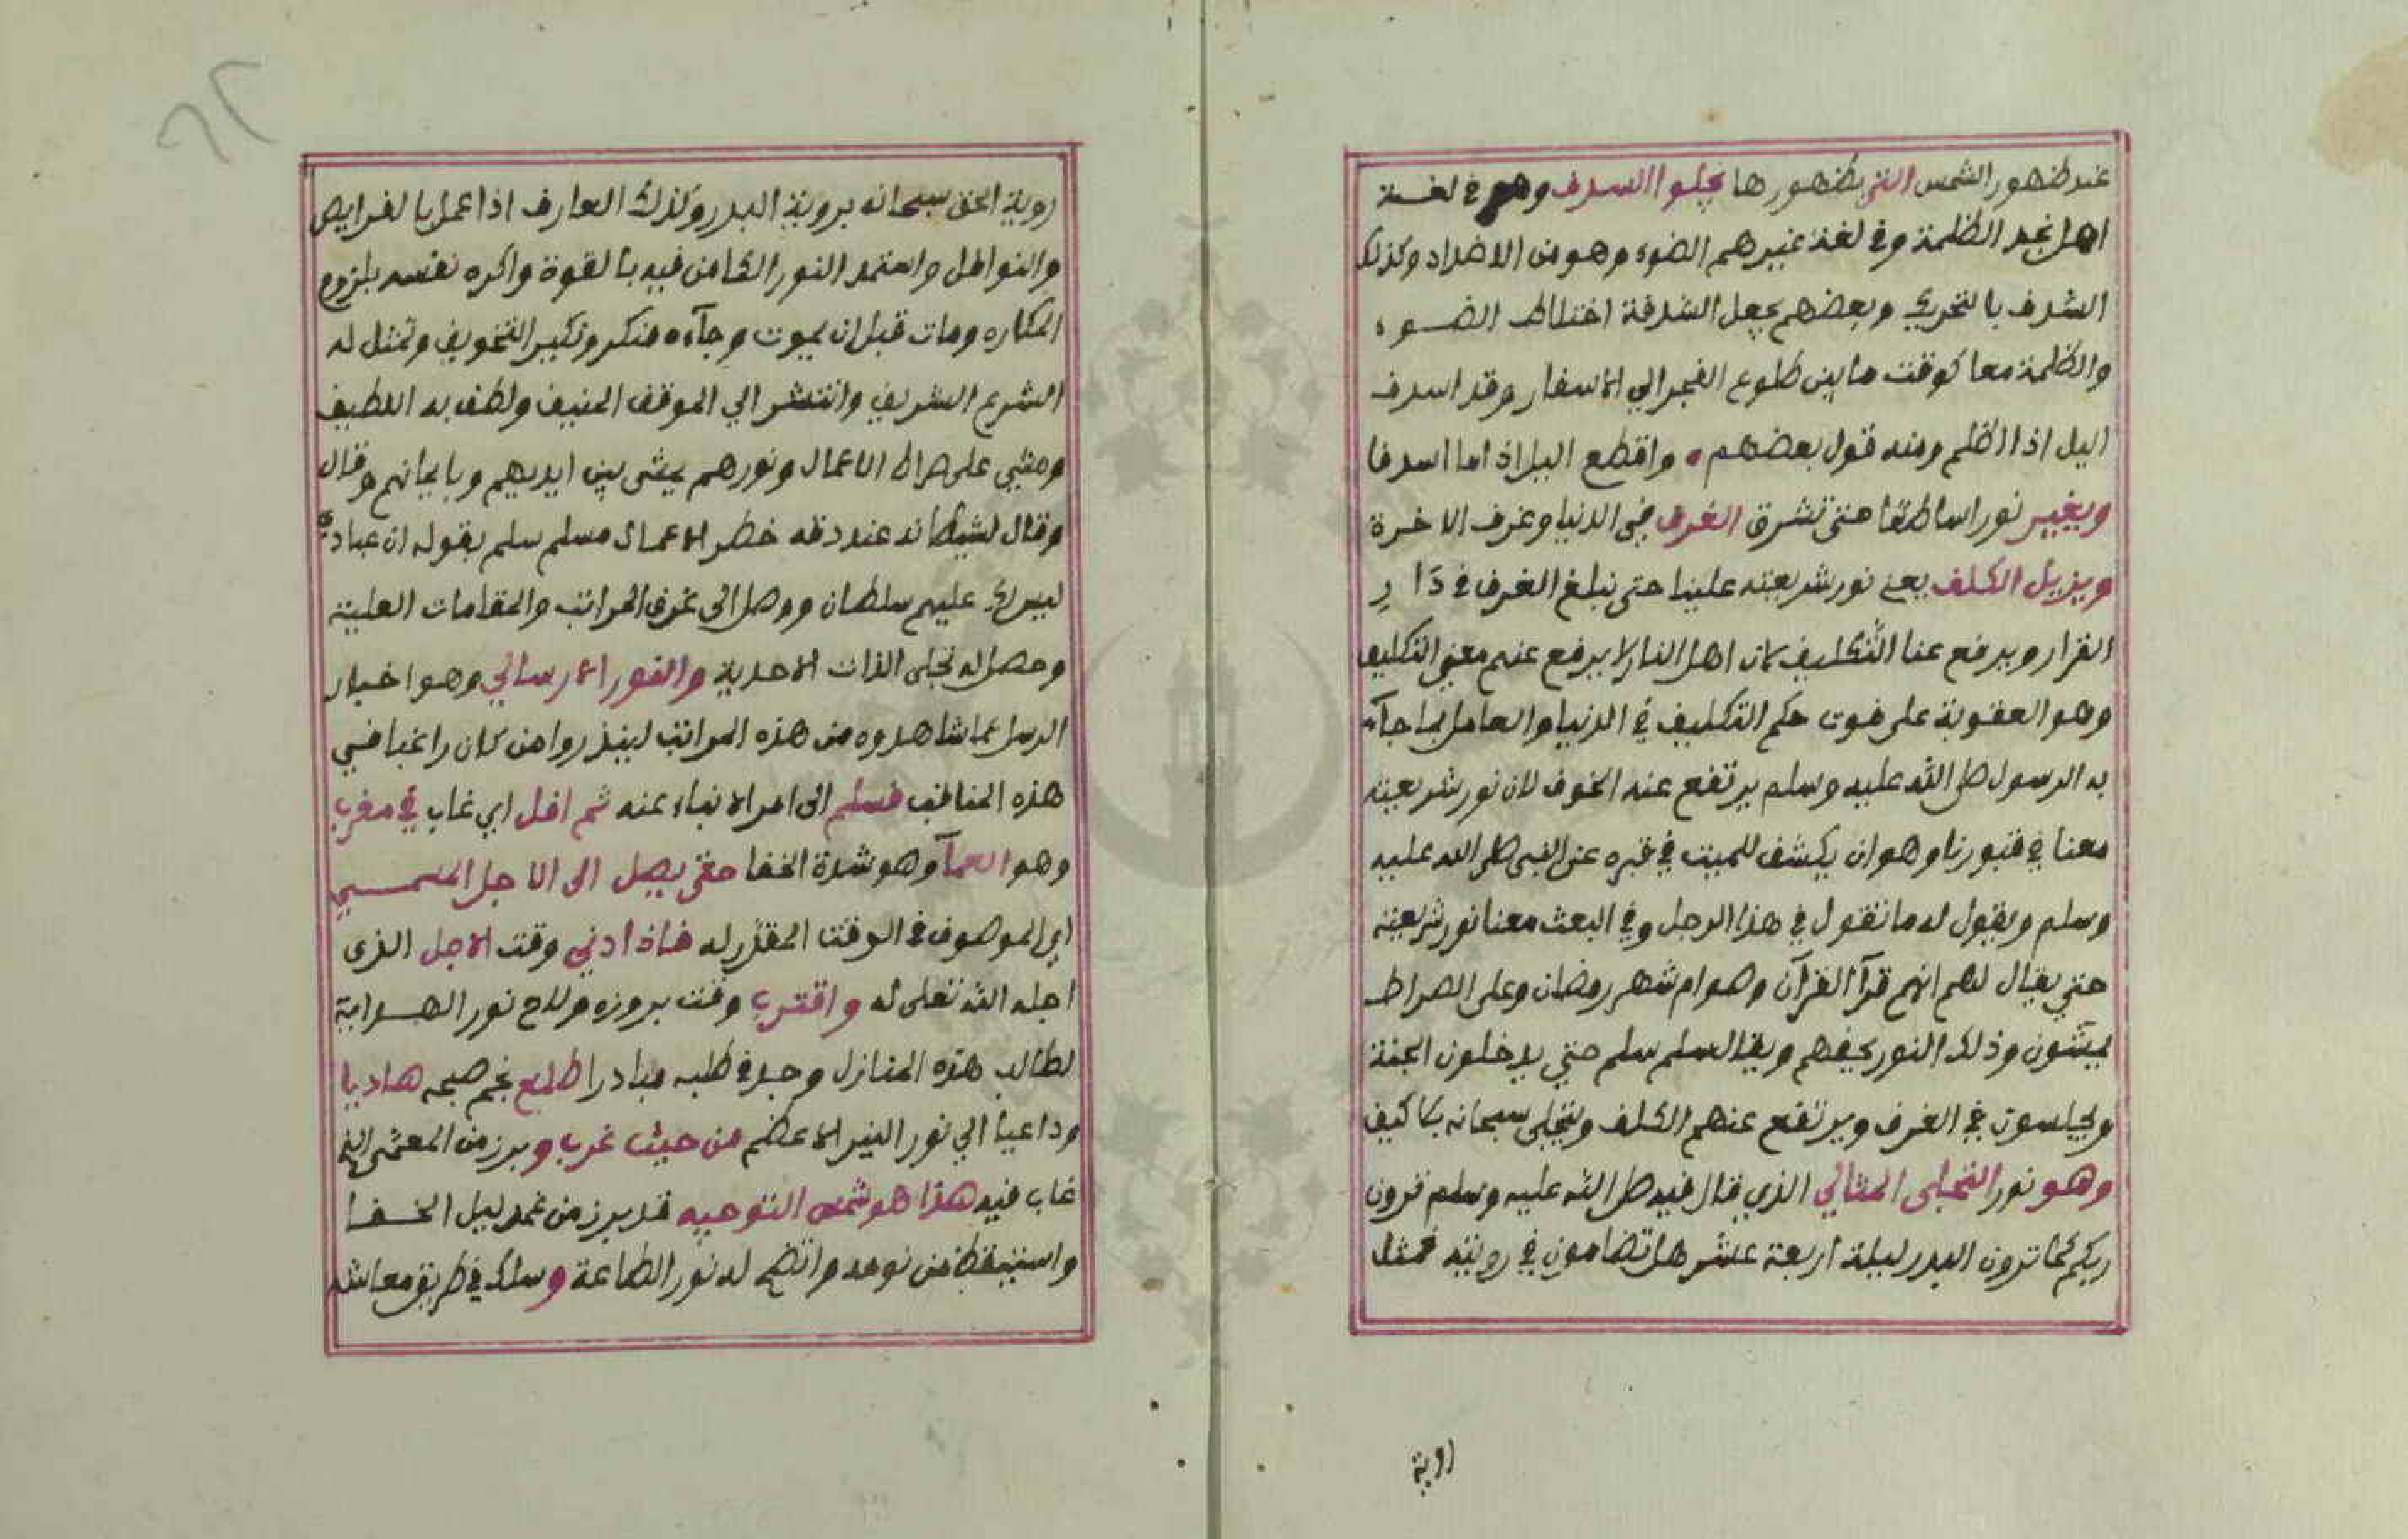 عند ظهور الشمس التي بظهورها يجلوا السدف وهو في لغة
اهل نجد الظلمة وفي لغة غيرهم الضوء وهو من الاضداد وكذلك
السدف بالتحريك وبعضهم يجعل السدفة اختلاط الضوء
والظلمة معا كوقت ما بين طلوع الفجر الي الاسفار وقد اسدف
اليل اذا اظلم ومنه قول بعضهم واقطع اليل اذا ما اسدفا
ويغيب نورا ساطعا حتى تشرق الغرف في الدنيا وغرف الاخرة
ويزيل الكلف يعني نور شريعته علينا حتى نبلغ الغرف في دار
القرار ويرفع عنا التكليف لان اهل النار لا يرفع عنهم معني التكليف
وهو العقوبة على فوت حكم التكليف في الدنيا والعامل بما جآء
به الرسول صلى الله عليه وسلم يرتفع عنه الخوف لان نور شريعته
معنا في قبورنا وهو ان يكشف للميت في قبره عن النبي صلى الله عليه
وسلم ويقول له ما تقول في هذا الرجل وفي البعث معنا نور شريعته
حتي يقال لهم انهم قرآ القرآن وصوام شهر رمضان وعلى الصراط
يمشون وذلك النور يحفهم ويقال سلم سلم حتي يدخلون الجنة
ويجلسون في الغرف ويرتفع عنهم الكلف ويتجلى سبحانه بلا كيف
وهو نور التجلى المثالي الذي قال فيه صلى الله عليه وسلم ترون
ربكم كما ترون البدر ليلة اربعة عشر هل تضامون في رويته فمثل
روية
روية الحق سبحانه بروية البدر وكذلك العارف اذا عمل بالفرايض
والنوافل واستمد النور الكامن فيه بالقوة واكره نفسه بلزوم
المكاره ومات قبل ان يموت وجآءه منكر ونكير التخويف وتمثل له
الشرع الشريف وانتشر الي الموقف المنيف ولطف به اللطيف
ومشي على صراط الاعمال ونورهم يمشى بين ايديهم وبايمانهم وقال
وقال لشيطانه عند دقة خطر الاعمال مسلم سلم بقوله ان عبادي
ليس لك عليهم سلطان ووصل الى غرف المراتب والمقامات العلية
وحصل له تجلى الذات الاحدية والنور الارسالي وهو اخبار
الرسل بما شاهدوه من هذه المراتب لينذروا من كان راغبا في
هذه المناقب فسلم الى امر الانباء عنه ثم افل اي غاب في مغرب
وهو العمآ وهو شدة الخفا حتى يصل الى الاجل المسمي
اي الموصوف في الوقت المقدر له فاذا دني وقت الاجل الذي
اجله الله تعلى له واقترب وقت بروزه ولاح نور الهداية
لطالب هذه المنازل وجد في طلبه مبادرا طلع نجم صبحه هاديا
وداعيا الي نور النير الاعظم من حيث غرب وبرز من المعشى الذي
غاب فيه هذا هو شمس التوجيه قد برز من غمد ليل الخفا
واستيقظ من نومه واتضح له نور الطاعة وسلك في طريق معاشه